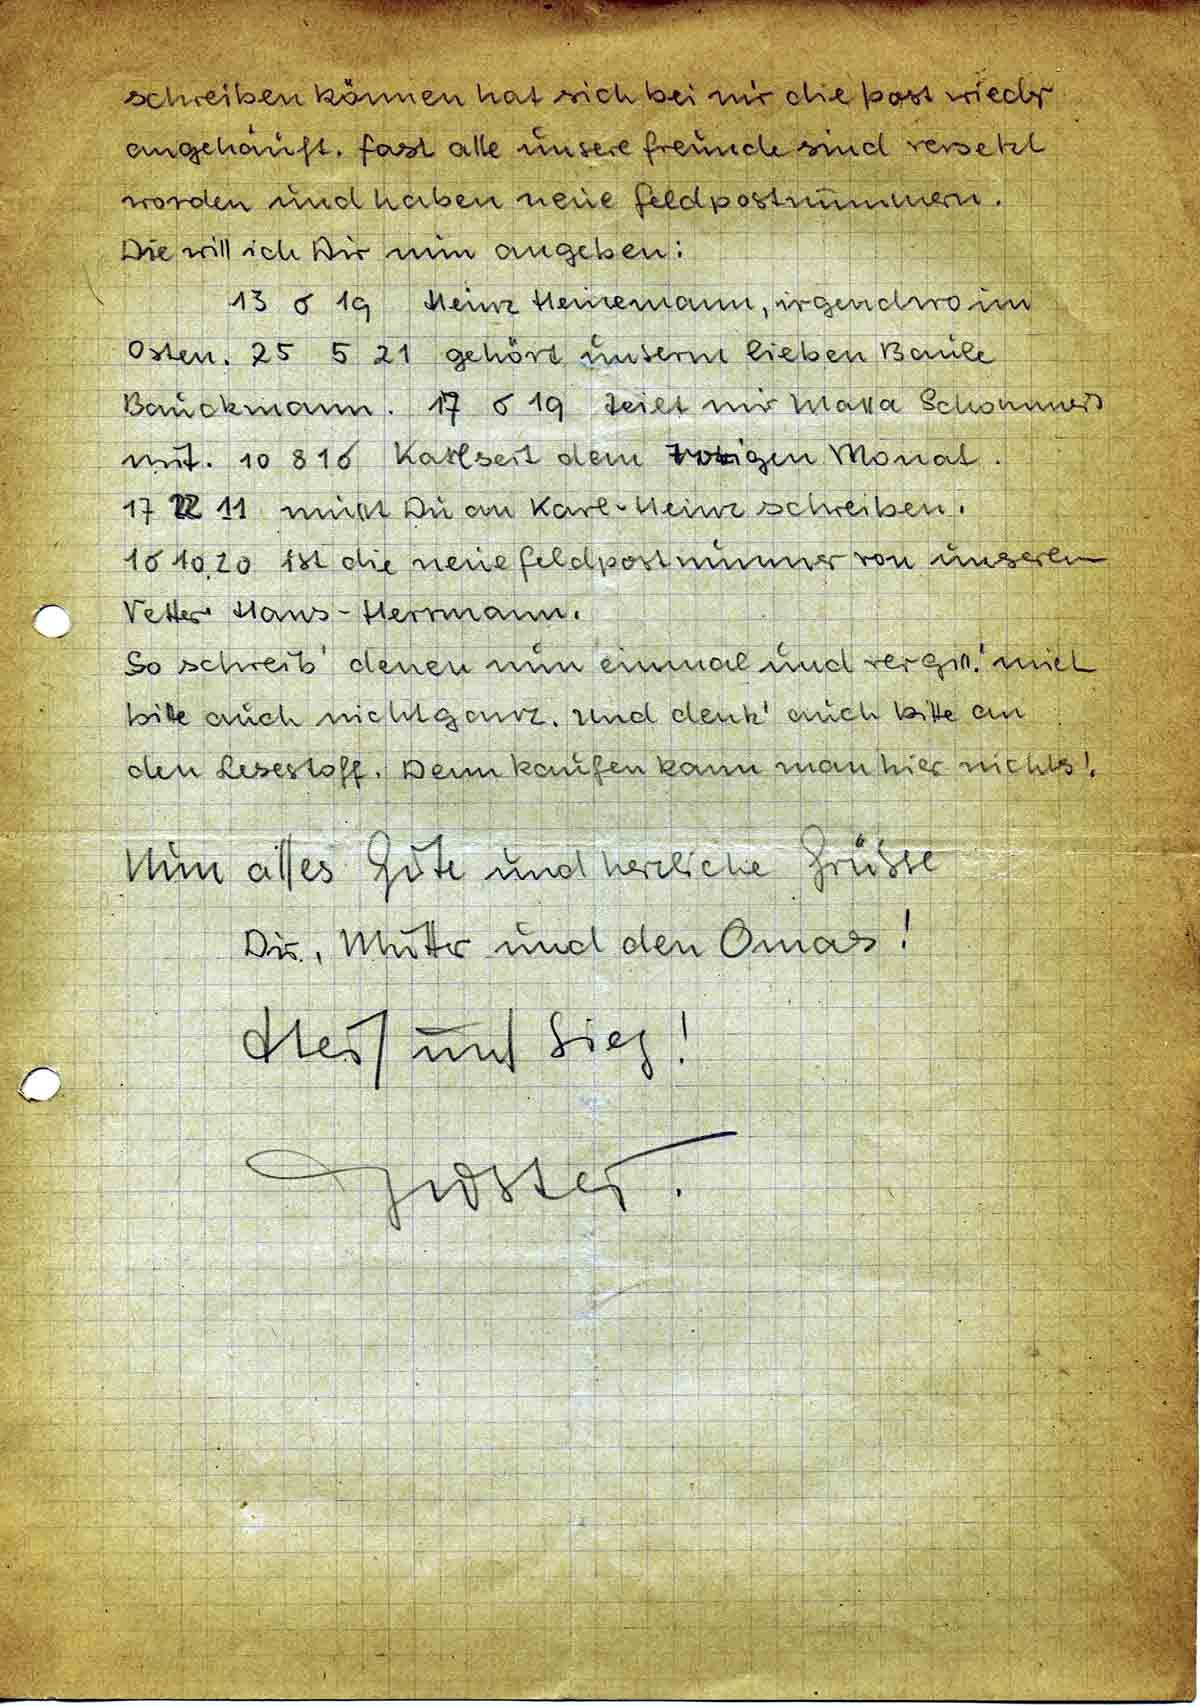 schreiben können hat sich bei mir die post wieder
angehäuft. fast alle unsere freunde sind versetzt
worden und haben neue feldpostnummern.
Die will ich Dir nun angeben:
13 6 19 Heinz Heinemann, irgendwo im
Osten. 25 5 21 gehört unserm lieben Baule
Bauckmann. 17 6 19 teilt mir
mit. 10 8 16 Karl seit dem vorigen Monat.
17 12 11 mußt Du an Karl-Heinz schreiben.
16 10 20 ist die neue feldpostnummer von unserem
Vetter Hans-Herrmann.
So schreib' denen nun einmal und vergiß! mich
bitte auch nicht ganz. Und denk' auch bitte an
den Lesestoff. Denn kaufen kann man hier nichts!
Nun alles Gute und herzliche Grüsse
Dir, Mutter und den Omas!
und Sieg!